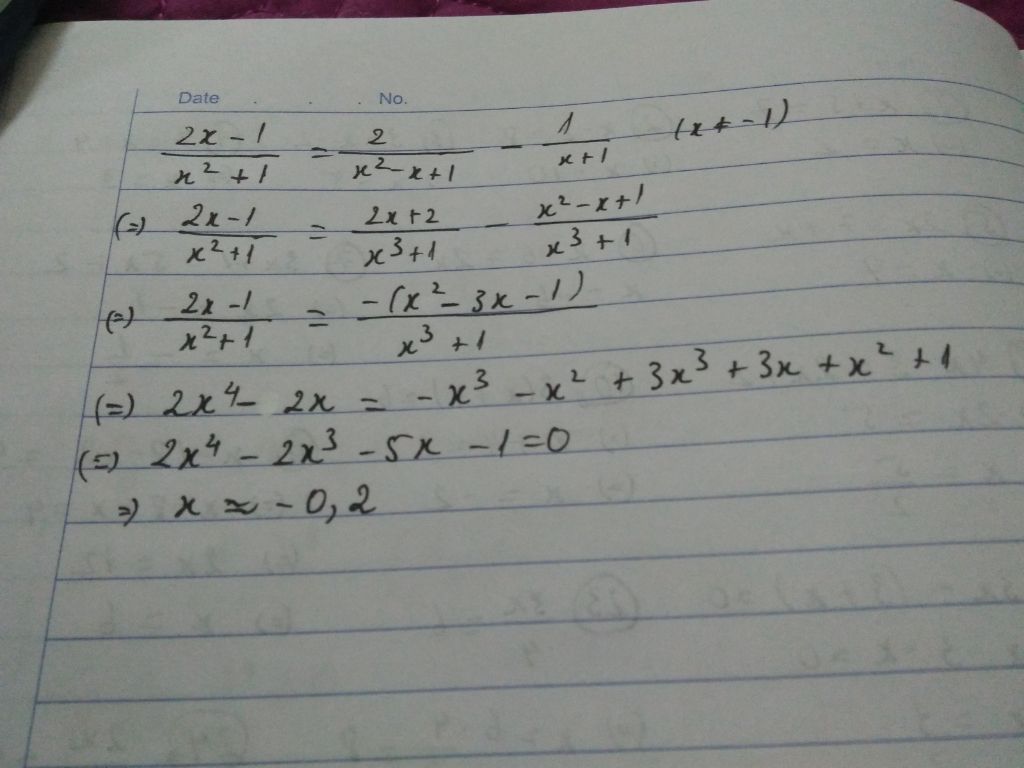 Date . . . No.
(2x - 1)/(x² + 1) = 2/(x² - x + 1) - 1/(x + 1) (x ≠ -1)
(=) (2x - 1)/(x² + 1) = (2x + 2)/(x³ + 1) - (x² - x + 1)/(x³ + 1)
(=) (2x - 1)/(x² + 1) = -(x² - 3x - 1)/(x³ + 1)
(=) 2x⁴ - 2x = -x³ - x² + 3x³ + 3x + x² + 1
(=) 2x⁴ - 2x³ - 5x - 1 = 0
=) x ≈ -0,2